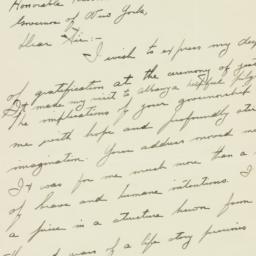 Honorable
Governor of New York,
Dear Sir:-
I wish to express my deep
of gratification at the ceremony of
It made my visit to Albany a helpful
The implications of your governorship
me with hope and profoundly
imagination. Your address moved me
It was for me much more than a
of brave and humane intentions. I
a juice in a structure hewn from
of a life story previous